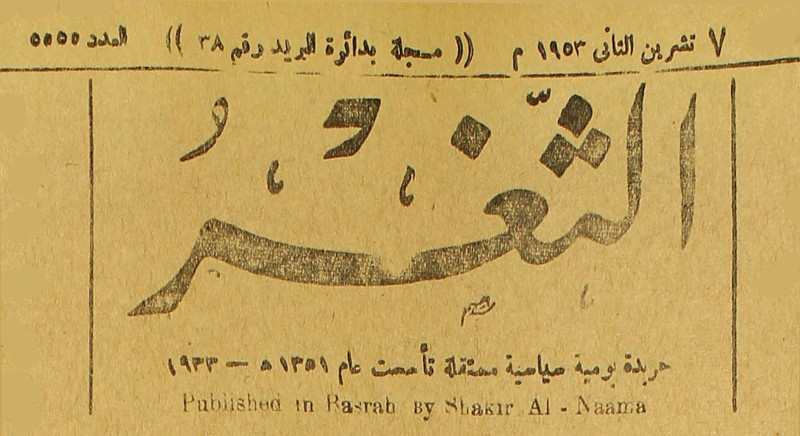 ٧ تشرين الثانى ١٩٥٣ م (( مسجلة بدائرة البريد رقم ٣٨ )) العدد ٥٥٥٥
الثغر
جريدة يومية سياسية مستقلة تأسست عام ١٣٥١ ه — ١٩٣٣
Published in Basrah By Shakir Al - Naama